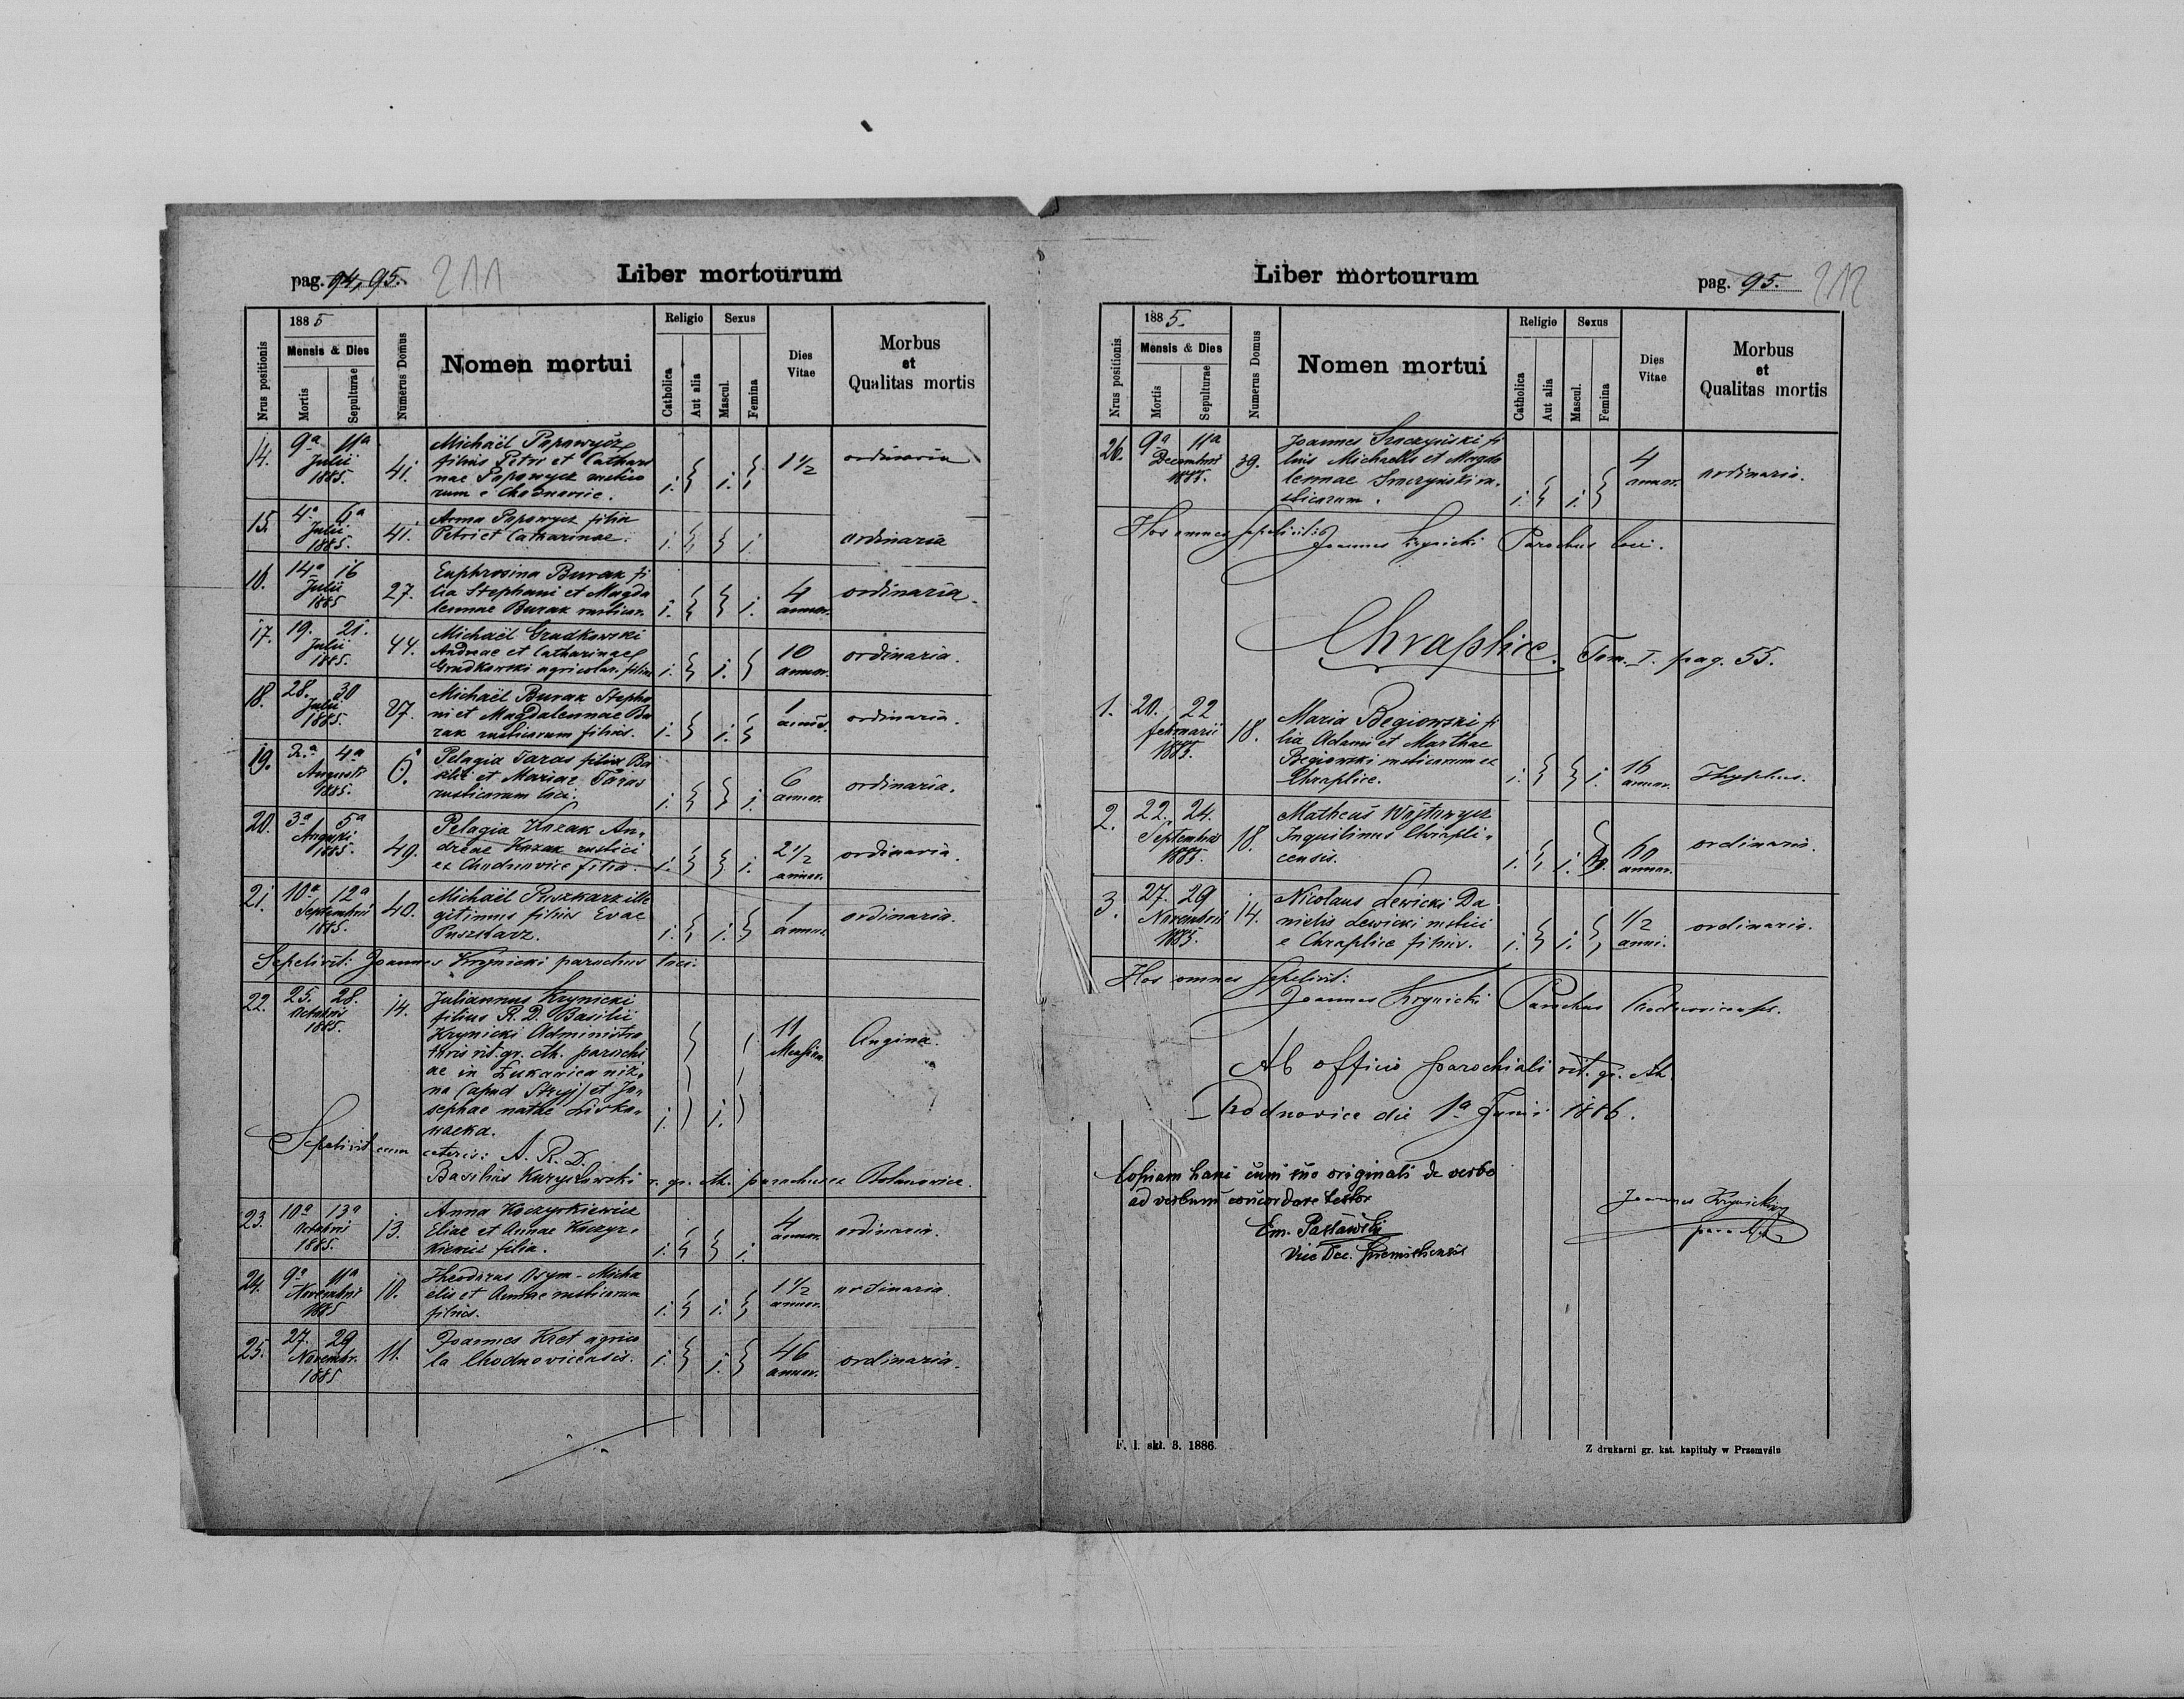 pag. 94, 95. 211
Liber mortourum
1885
Nrus positionis
Mensis & Dies
Mortis
Sepulturae
Numerus Domus
Nomen mortui
Religio
Catholica
Aut alia
Sexus
Mascul.
Femina
Dies
Vitae
Morbus
et
Qualitas mortis
14. 9a 11a
Julii
1885.
41.
Michaël Popowycz
filius Petri et Cathari
nae Popowycz rustico
rum e Chodnowic.
1. 1. 1½ ordinaria
15. 4a 6a
Julii
1885.
41.
Anna Popowycz filia
Petri et Catharinae.
1. 1. ordinaria
16. 14a 16
Julii
1885
27.
Euphrosina Burak fi
lia Stephani et Magda
lennae Burak rusticor.
1. 1. 4
annor.
ordinaria.
17. 19. 21.
Julii
1885.
44.
Michaël Grudkowski
Andreae et Catharinae
Grudkowski agricolar. filius
1. 1. 10
annor.
ordinaria.
18. 28. 30
Julii
1885.
27.
Michaël Burak Stepha
ni et Magdalennae Bu
rak rusticorum filius.
1. 1. 1
ordinaria.
19. 2.a 4a
Augusti
1885.
6.
Pelagia Taras filia Ba
silii et Mariae Taras
rusticorum loci.
1. 1. 6
annor.
ordinaria.
20. 3a 5a
Augusti
1885.
49.
Pelagia Kozak An-
dreae Kozak rustici
ex Chodnovice filia.
1. 1. 2½
annor.
ordinaria.
21. 10a 12a
Septembri
1885.
40.
Michaël Puszkarz ille
gitimus filius Evae
Puszkarz.
1. 1. 1
ordinaria.
Sepelivit: Joannes Krynicki parochus loci.
22. 25. 28.
Octobris
1885.
14.
Juliannus Krynicki
filius R. D. Basilii
Krynicki Administra
toris rit. gr. cth. parochi
ae in Łukawica niż-
na (apud Stryj) et Jo-
sephae natae
1. 1. 11
Angina.
Sepelivit eum ceteris: A. R. D.
Basilius Kuryłowski r. gr. cth. parochus ex Bolanovice.
23. 10a 13a
Octobri
1885.
13.
Anna Kaczyrkiewicz
Eliae et Annae Kaczyr-
kiewicz filia.
1. 1. 4
annor.
ordinaria.
24. 9a 11a
Novembri
1885
10.
Theodorus Osym - Micha
elis et Annae rusticorum
filius.
1. 1. 1½
annor.
ordinaria.
25. 27. 29
Novembr.
1885
11.
Joannes Kret agrico
la Chodnovicensis.
1. 1. 46
annor.
ordinaria.
Liber mortourum
pag. 95. 212
1885.
Nrus positionis.
Mensis & Dies
Mortis
Sepulturae
Numerus Domus
Nomen mortui
Religio
Catholica
Aut alia
Sexus
Mascul.
Femina
Dies
Vitae
Morbus
et
Qualitas mortis
26. 9a 11a
Decembri
1885.
39.
Joannes Smczyński fi
lius Michaelis et Magda
lennae Smczyński ru-
sticorum.
1. 1. 4
annor.
ordinaria.
Hos omnes sepelivit:
Joannes Krynicki Parochus loci.
Chraplice. Tom. I. pag. 55.
1. 20. 22
februarii
1885.
18.
Maria Begiowski fi
lia Adami et Marthae
Begiowski rusticorum ex
Chraplice.
1. 1. 16
annor.
Thyphus.
2. 22. 24.
Septembris
1885.
18.
Matheus Wojtowycz
Inquilinus Chrapli-
censis.
1. 1. 60
annor.
ordinaria.
3. 27. 29
Novembri
1885.
14.
Nicolaus Lewicki Da
nielis Lewicki rustici
e Chraplice filius.
1. 1. 1/2
anni.
ordinaria.
Hos omnes sepelivit:
Joannes Krynicki Parochus Chodnovicensis.
Ab officio parochiali rit. gr. cth.
Chodnovice die 1a Junii 1886.
Copiam hanc cum suo originali de verbo
ad verbum concordare testor
Em. Pasławski
Vice Dec. Premisliensis
Joannes Krynicki
parochus
F. I. skł. 3. 1886.
Z drukarni gr. kat. kapituły w Przemyślu